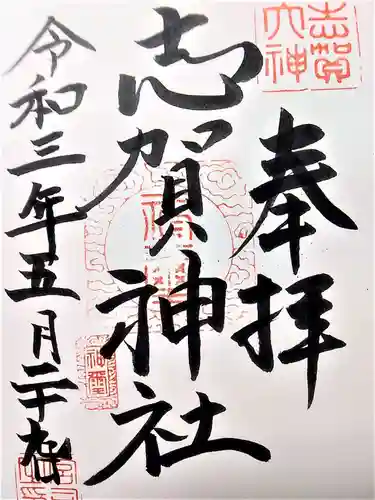 奉拝
志賀神社
令和三年五月二十五日
志賀
大神